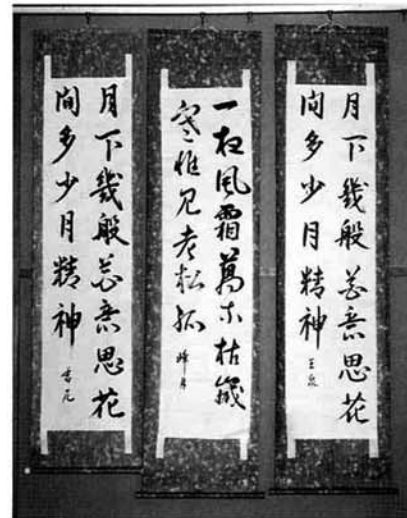 月下幾般花意思花
間多少月精神
一夜風霜萬木枯歲
寒惟見老松孤
月下幾般花意思花
間多少月精神